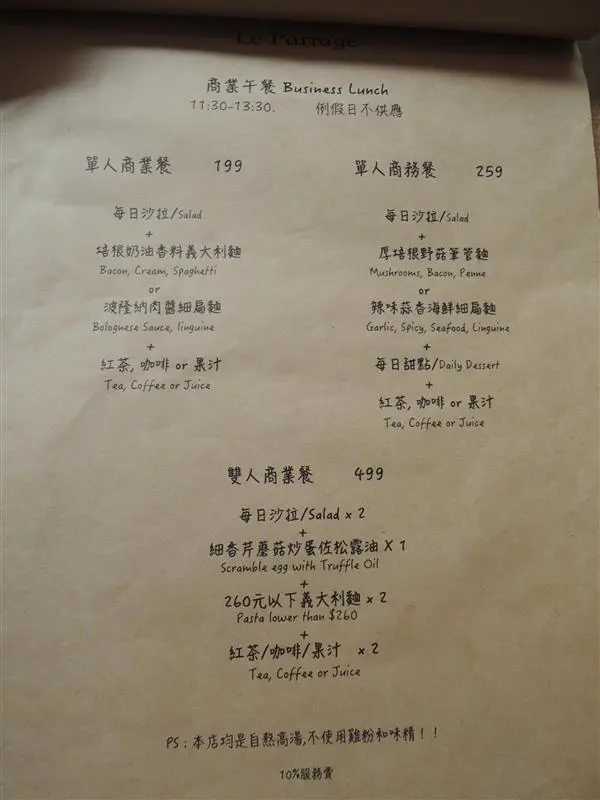 Le Partage
商業午餐 Business Lunch
11:30-13:30. 例假日不供應
單人商業餐 199
每日沙拉/Salad
+
培根奶油香料義大利麵
Bacon, Cream, Spaghetti
or
波隆納肉醬細扁麵
Bolognese Sauce, linguine
+
紅茶, 咖啡 or 果汁
Tea, Coffee or Juice
單人商務餐 259
每日沙拉/Salad
+
厚培根野菇筆管麵
Mushrooms, Bacon, Penne
or
辣味蒜香海鮮細扁麵
Garlic, Spicy, Seafood, Linguine
+
每日甜點/Daily Dessert
+
紅茶, 咖啡 or 果汁
Tea, Coffee or Juice
雙人商業餐 499
每日沙拉/Salad x 2
+
細香芹蘑菇炒蛋佐松露油 X 1
Scramble egg with Truffle Oil
+
260元以下義大利麵 x 2
Pasta lower than $260
+
紅茶/咖啡/果汁 x 2
Tea, Coffee or Juice
PS：本店均是自熬高湯,不使用雞粉和味精！！
10%服務費